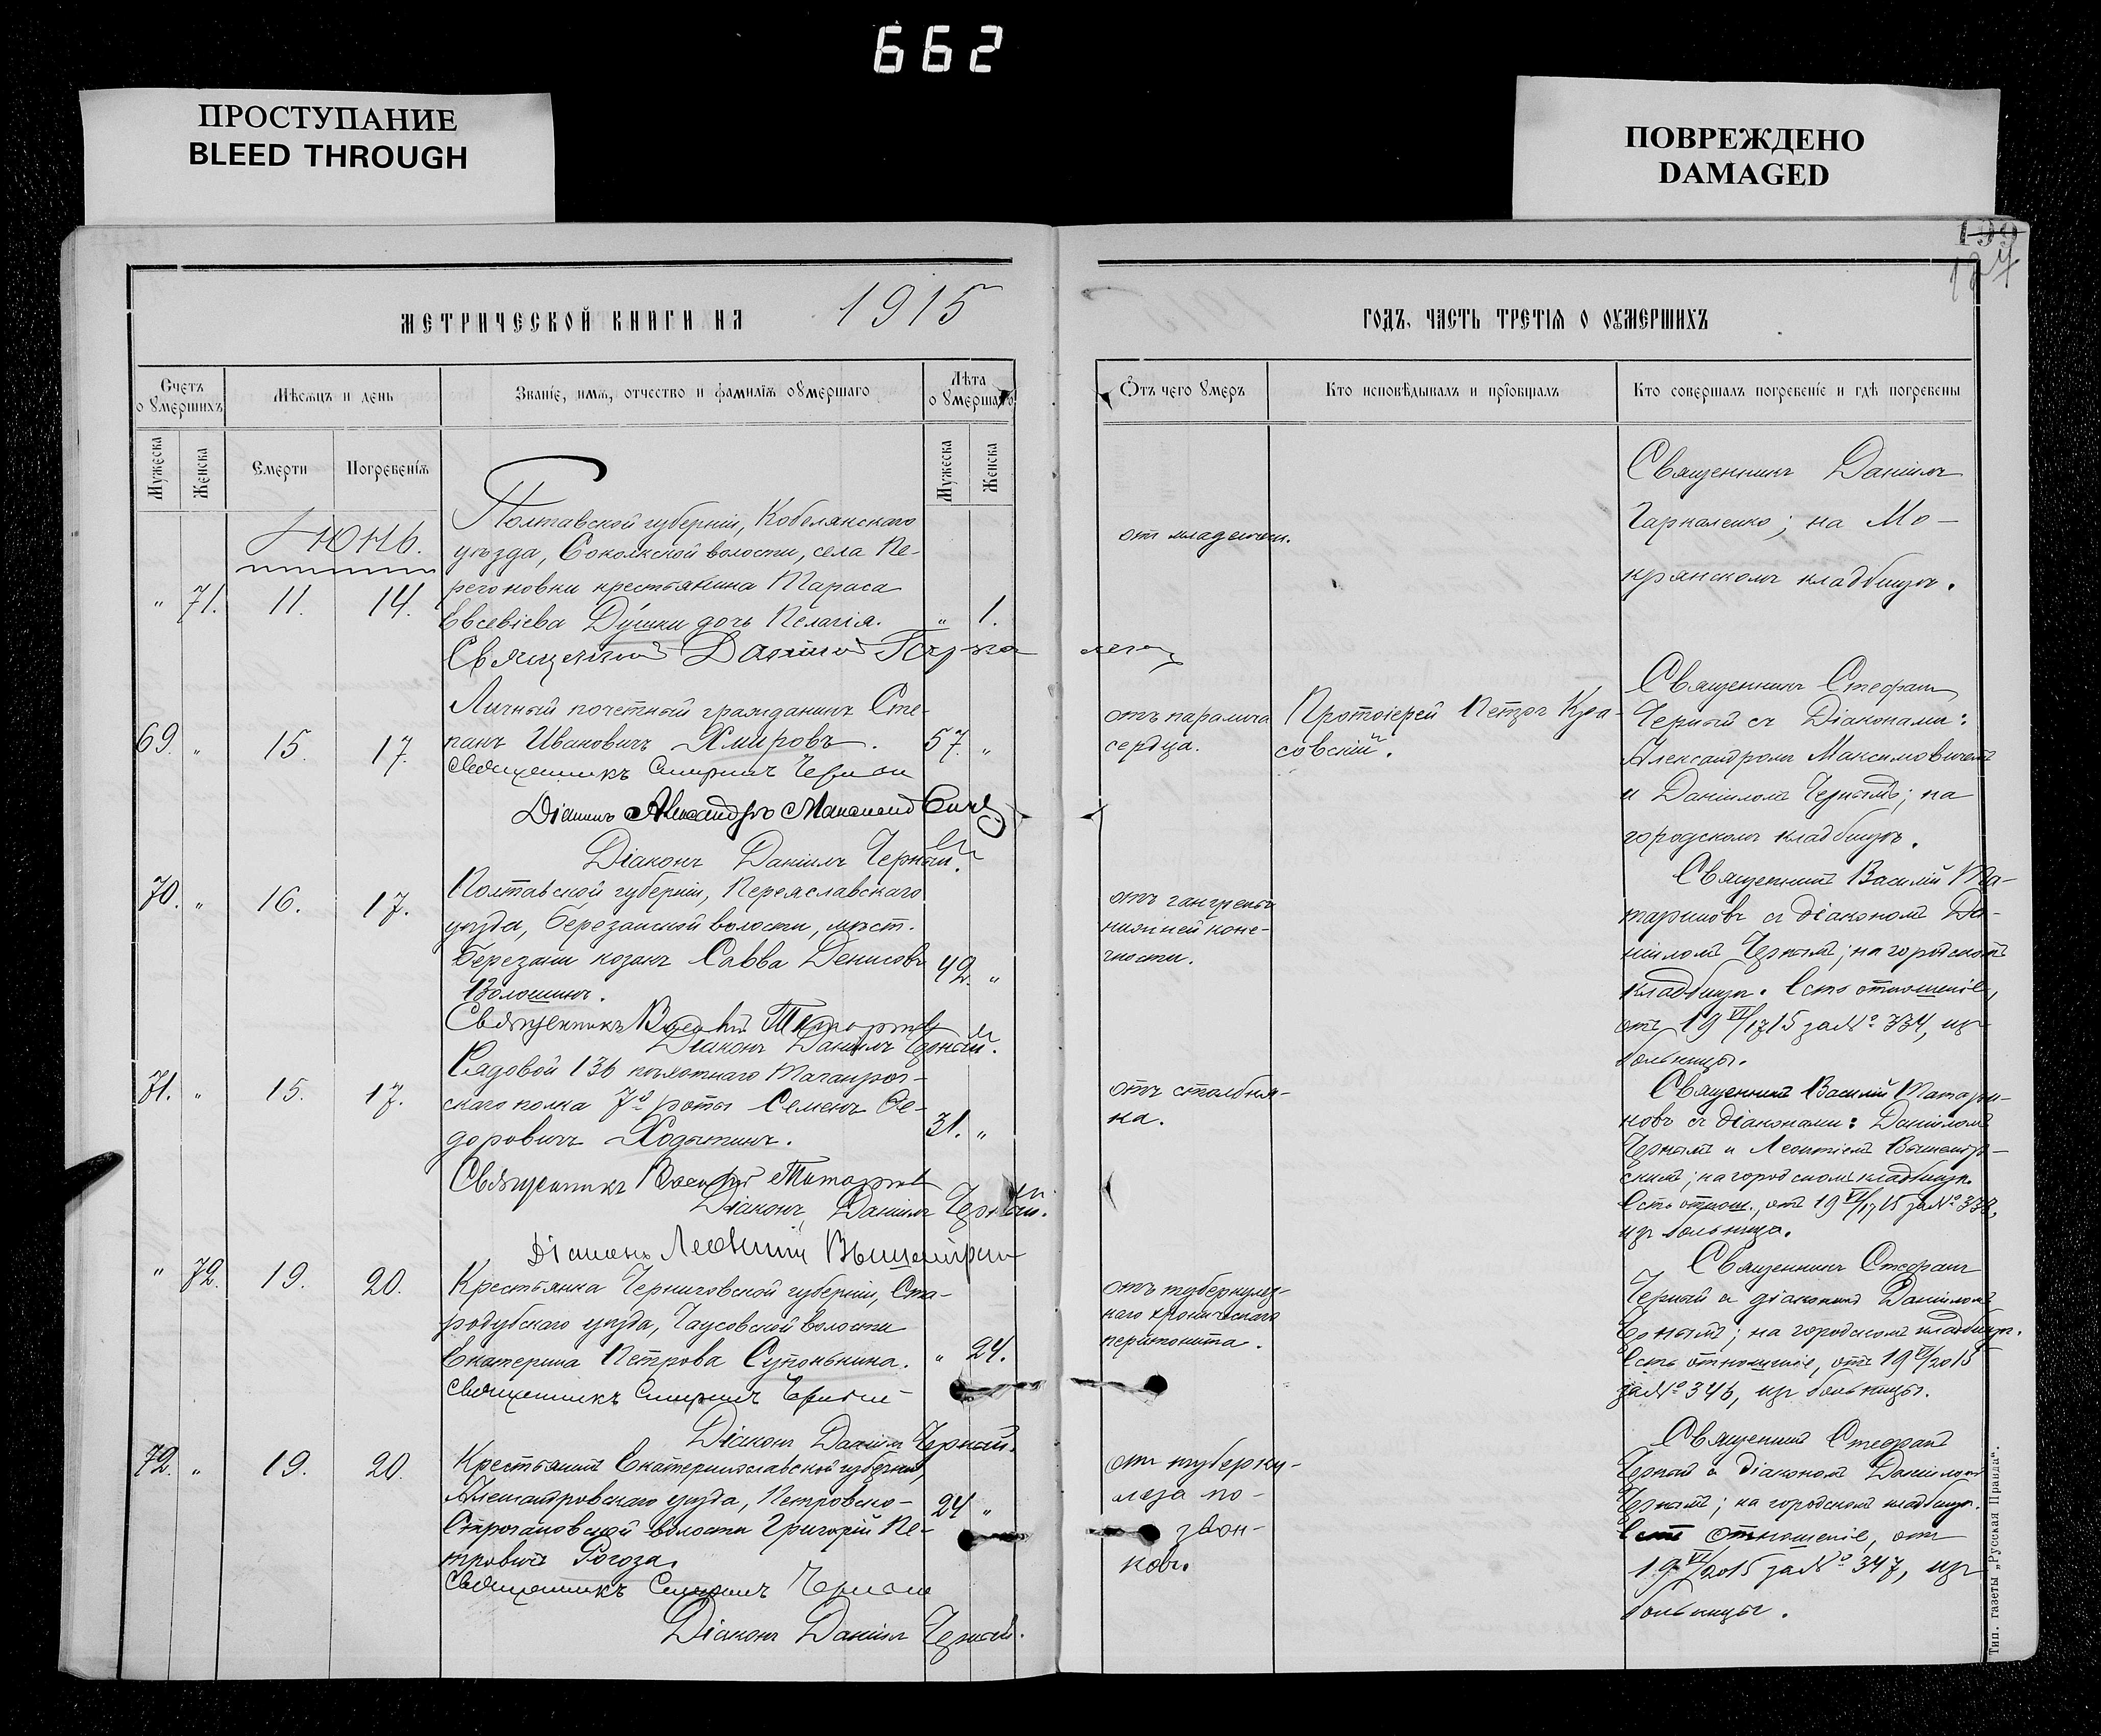 662
ПРОСТУПАНИЕ
BLEED THROUGH
ПОВРЕЖДЕНО
DAMAGED
199
127
МЕТРИЧЕСКОЙ КНИГИ НА 1915
ГОДЪ, ЧАСТЬ ТРЕТІЯ О ОУМЕРШИХЪ
Счетъ оумершихъ
Мѣсяцъ и день
Званіе, имя, отчество и фамилія оумершаго
Лѣта оумершаго
Отъ чего умеръ
Кто исповѣдывалъ и пріобщалъ
Кто совершалъ погребеніе и гдѣ погребены
Мужеска
Женска
Смерти
Погребенія
Мужеска
Женска
Іюнь.
" 71. 11. 14.
Полтавской губерніи, Кобелякскаго
уѣзда, Соколкской волости, села Пе-
регоновки крестьянина Тараса
Евсевіева Душки дочь Пелагія. " 1.
Священникъ Даніилъ
от младенч.
Священникъ Даніилъ
Гаркаленко; на Мо-
крянскомъ кладбищѣ.
69. " 15. 17.
Личный почетный гражданинъ Сте-
панъ Ивановичъ Хмировъ. 57. "
Священникъ Стефанъ Черный
Діаконъ Александръ
Діаконъ Даніилъ Черный.
отъ паралича
сердца.
Протоіерей Петръ Кра-
совскій.
Священникъ Стефанъ
Черный съ Діаконами:
Александромъ Максимовичемъ
и Даніиломъ Чернымъ; на
городскомъ кладбищѣ.
70. " 16. 17.
Полтавской губерніи, Переяславскаго
уѣзда, Березанской волости, мѣст.
Березани козакъ Савва Денисовъ 49. "
Волошинъ.
Священникъ Василій Татариновъ
Діаконъ Даніилъ Черный.
отъ гангрены
нижней коне-
чности.
Священникъ Василій Та-
тариновъ съ діакономъ Да-
ніиломъ Чернымъ; на городскомъ
кладбищѣ. Есть отношеніе,
отъ 19 VI/17 15 за № 334, изъ
больницы.
71. " 15. 17.
Рядовой 136 пѣхотнаго Таганрог-
скаго полка 7й роты Семенъ Ѳе-
доровичъ Ходыкинъ. 31. "
Священникъ Василій Татариновъ
Діаконъ Даніилъ Черный.
Діаконъ Леонтій
отъ столбня-
ка.
Священникъ Василій Татари-
новъ съ діаконами: Даніиломъ
Чернымъ и Леонтіемъ
скимъ; на городскомъ кладбищѣ.
Есть отнош., отъ 19 VI/17 15 за № 333,
изъ больницы.
" 72. 19. 20.
Крестьянка Черниговской губерніи, Ста-
родубскаго уѣзда, Чаусовской волости
Екатерина Петрова Супонькина. " 24.
Священникъ Стефанъ Черный
Діаконъ Даніилъ Черный.
отъ туберкулез-
наго хроническаго
перитонита.
Священникъ Стефанъ
Черный съ діакономъ Даніиломъ
Чернымъ; на городскомъ кладбищѣ.
Есть отношеніе, отъ 19 VI/20 15
за № 346, изъ больницы.
72. " 19. 20.
Крестьянинъ Екатеринославской губерніи,
Александровскаго уѣзда, Петровско- 24 "
Строгановской волости Григорій Пе-
тровичъ Рогоза.
Священникъ Стефанъ Черный
Діаконъ Даніилъ Черный.
отъ туберку-
леза по-
звон-
ковъ.
Священникъ Стефанъ
Черный съ діакономъ Даніиломъ
Чернымъ; на городскомъ кладбищѣ.
Есть отношеніе, отъ
19 VI/20 15 за № 347, изъ
больницы.
Тип. газеты „Русская Правда“.